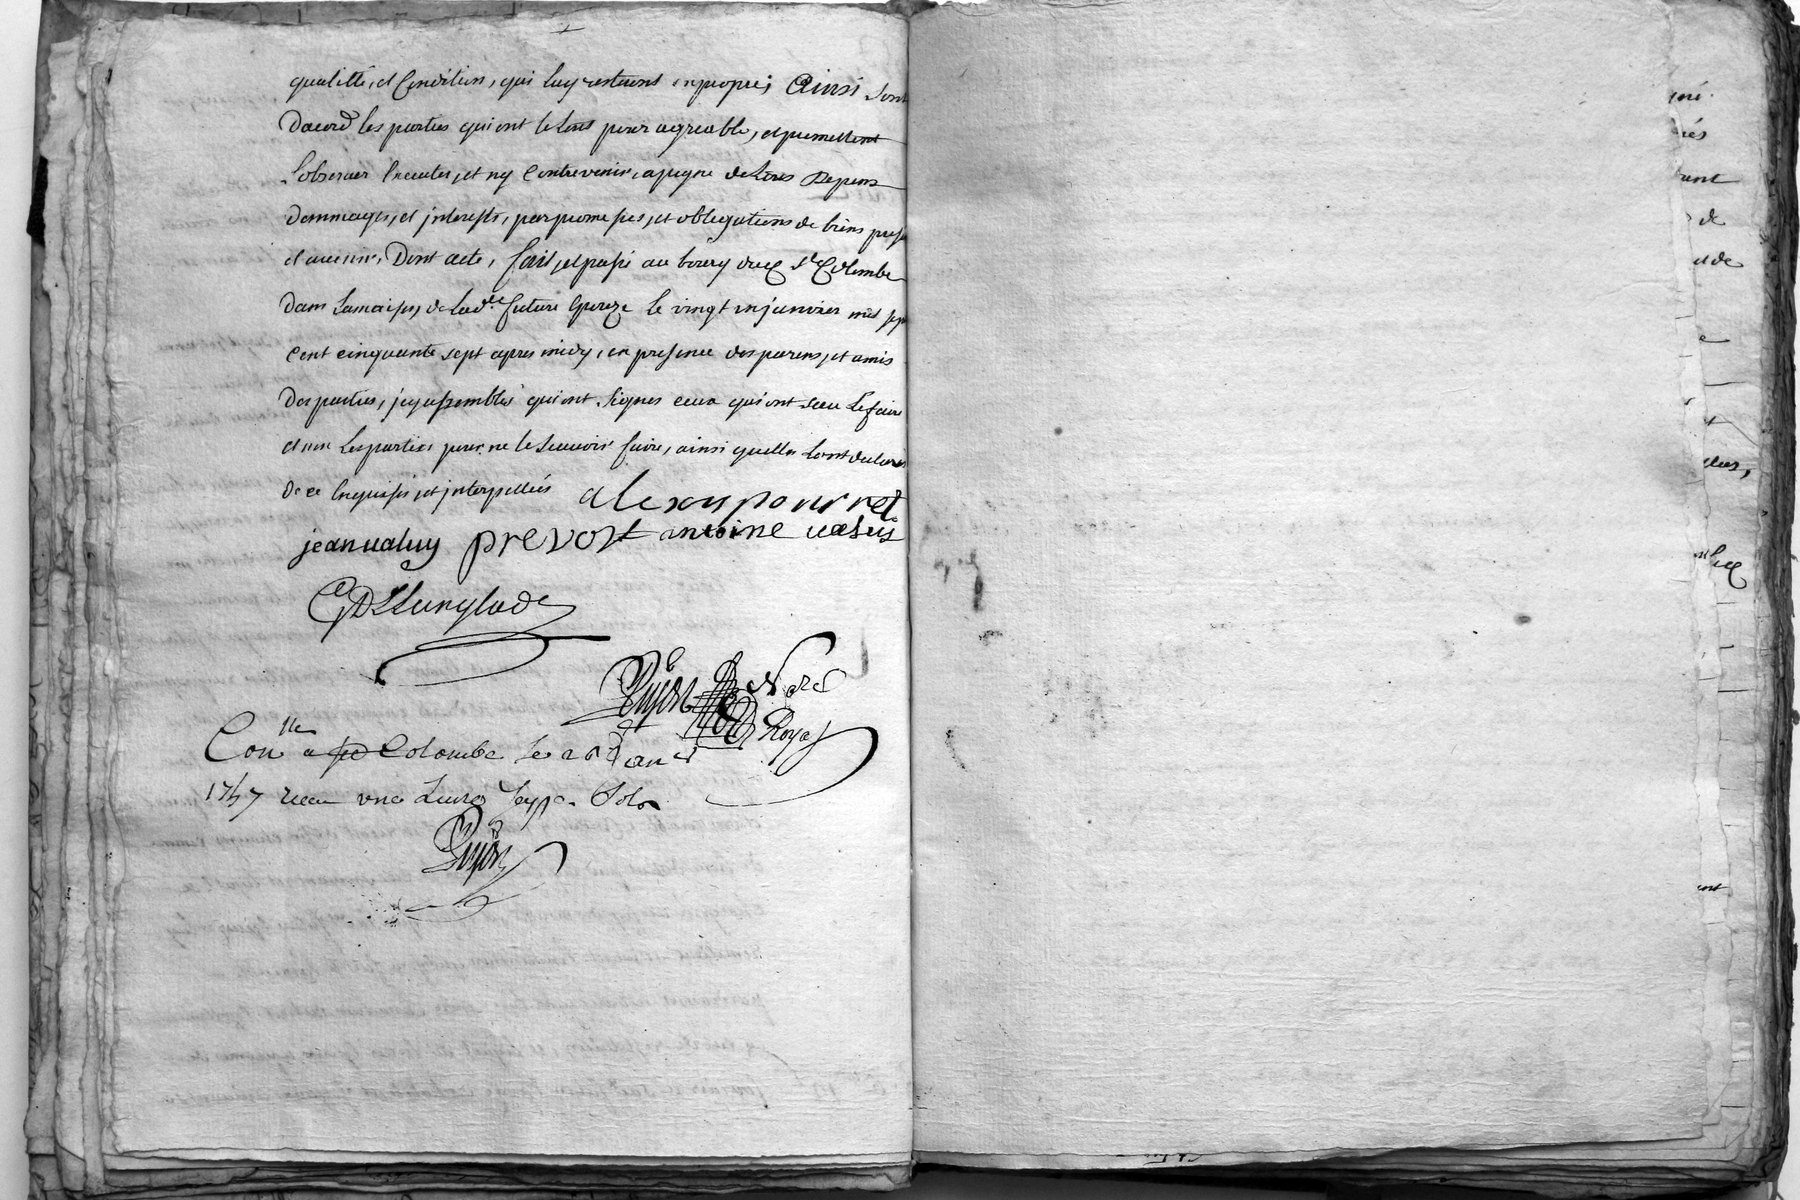 qualitté, et Condition, qui luy restront en propre; Ainsi sont
Dacord les parties qui ont le tout pour agreable, et promettent
Lobserver Executer, et ny Contrevenir, a peyne de tous Depens
dommages, et jnterests, par promesses, et obligations de biens pres
et avenir, Dont acte, fait, et passé au bourg de Ste Colombe
Dans la maison de lad. te future Epouze le vingt un janvier mil sep
cent cinquante sept apres midy, en presence des parens, et amis
des parties, jcy assemblés qui ont signes ceux qui ont sceu le faire
et non les parties pour ne le sçauoir faire, ainsi quelles ont declaré
de ce Enquises et jnterpellées alexy pourret
jean ualuy prevost antoine uasus
DeLanglade
Pujon No.re Royal
Con.lle a Ste Colombe le 26 Janer
1757 receu une Livre Sols
Pujon